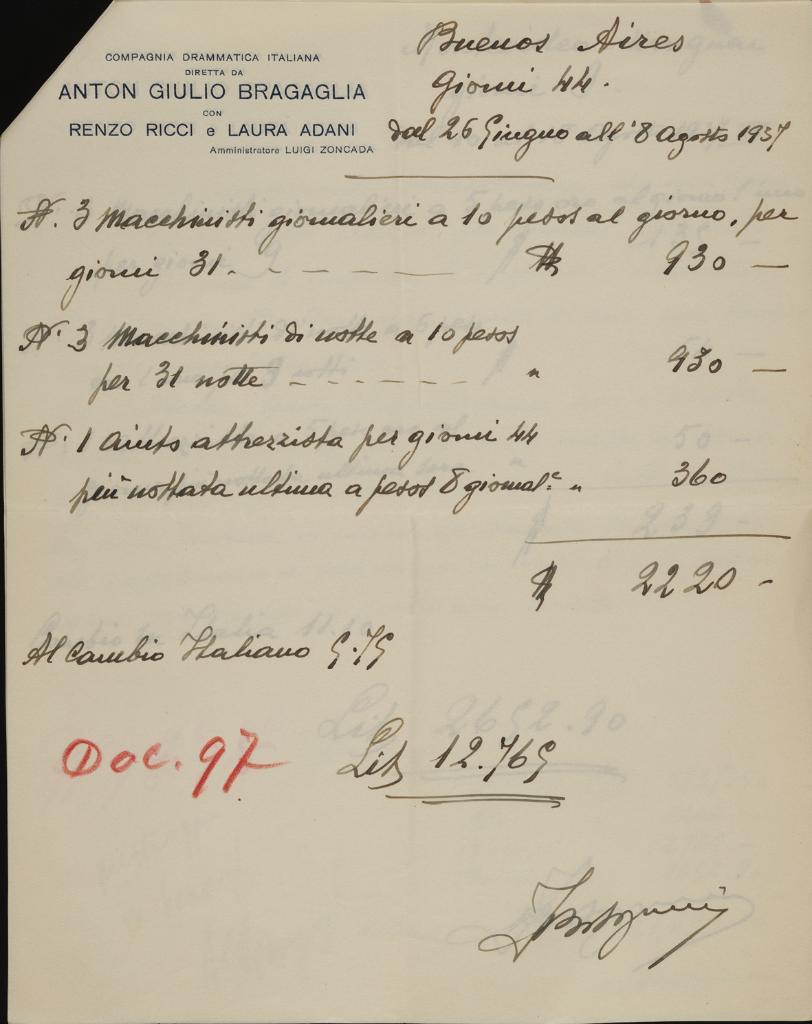 COMPAGNIA DRAMMATICA ITALIANA
DIRETTA DA
ANTON GIULIO BRAGAGLIA
CON
RENZO RICCI e LAURA ADANI
Amministratore LUIGI ZONCADA
Buenos Aires
Giorni 44.
dal 26 Giugno all'8 Agosto 1937
N. 3 Macchinisti giornalieri a 10 pesos al giorno, per
giorni 31. - - - - $ 930 —
N. 3 Macchinisti di notte a 10 pesos
per 31 notte - - - - - " 930 —
N. 1 Aiuto attrezzista per giorni 44
più nottata ultima a pesos 8 giornal.e " 360
$ 2220 -
Al Cambio Italiano 5.75
Doc. 97
Lit 12.765